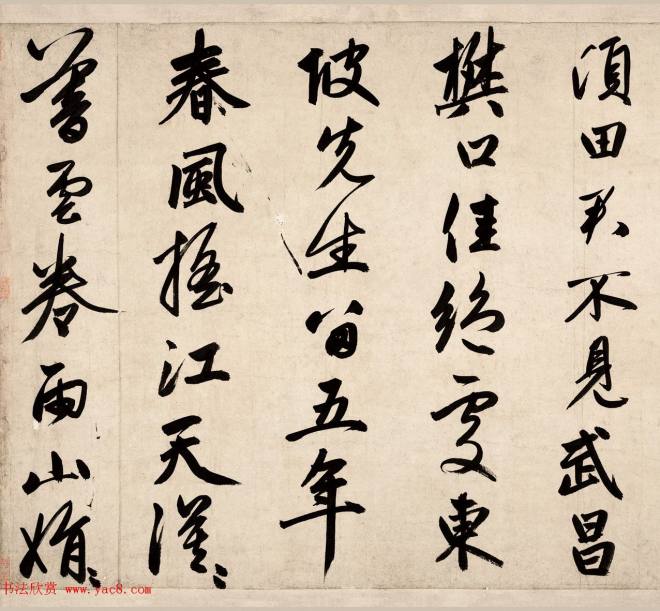 頃田君不見武昌
樊口佳絕處東
坡先生留五年
春風搖江天漠〻
暮雲卷雨山娟〻
书法欣赏 www.yac8.com